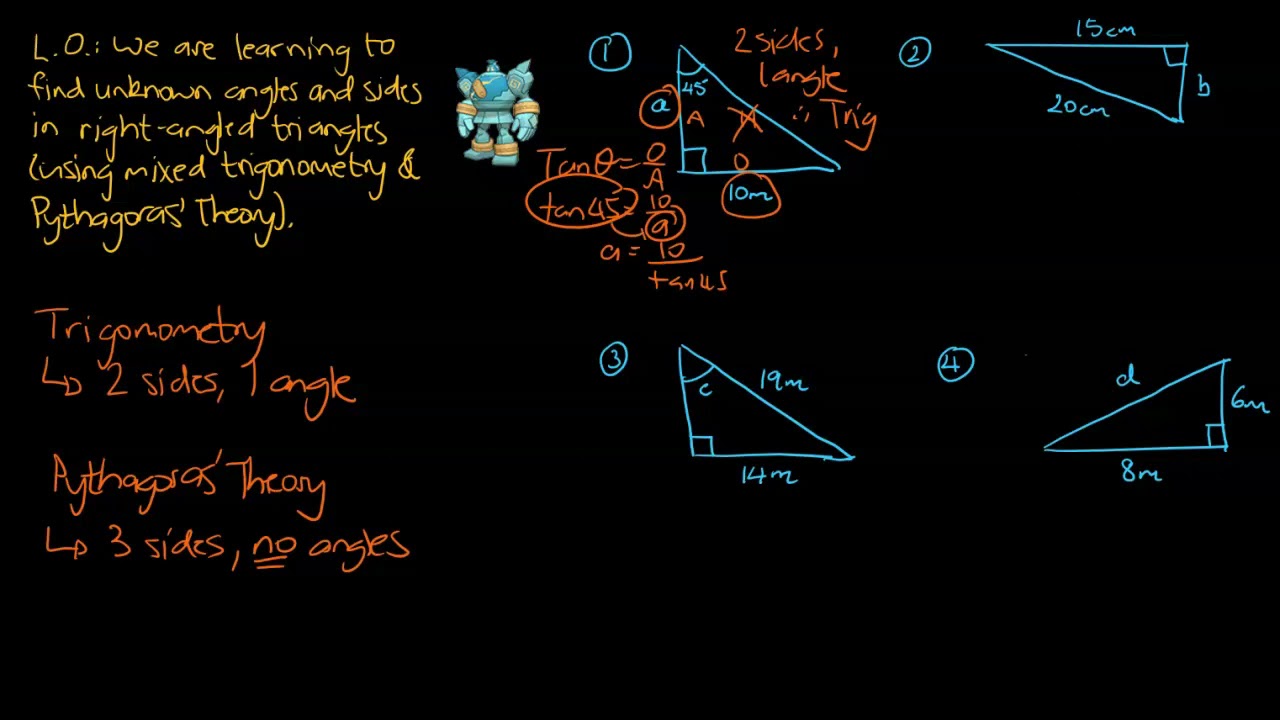 L.O.: We are learning to
find unknown angles and sides
in right-angled triangles
(using mixed trigonometry &
Pythagoras' Theory).
Trigonometry
↳ 2 sides, 1 angle
Pythagoras' Theory
↳ 3 sides, no angles
①
2 sides,
1 angle
∴ Trig
45°
a
A
H
O
10m
Tanθ = O/A
tan45 = 10/a
a = 10/tan45
②
15cm
b
20cm
③
c
19m
14m
④
d
6m
8m